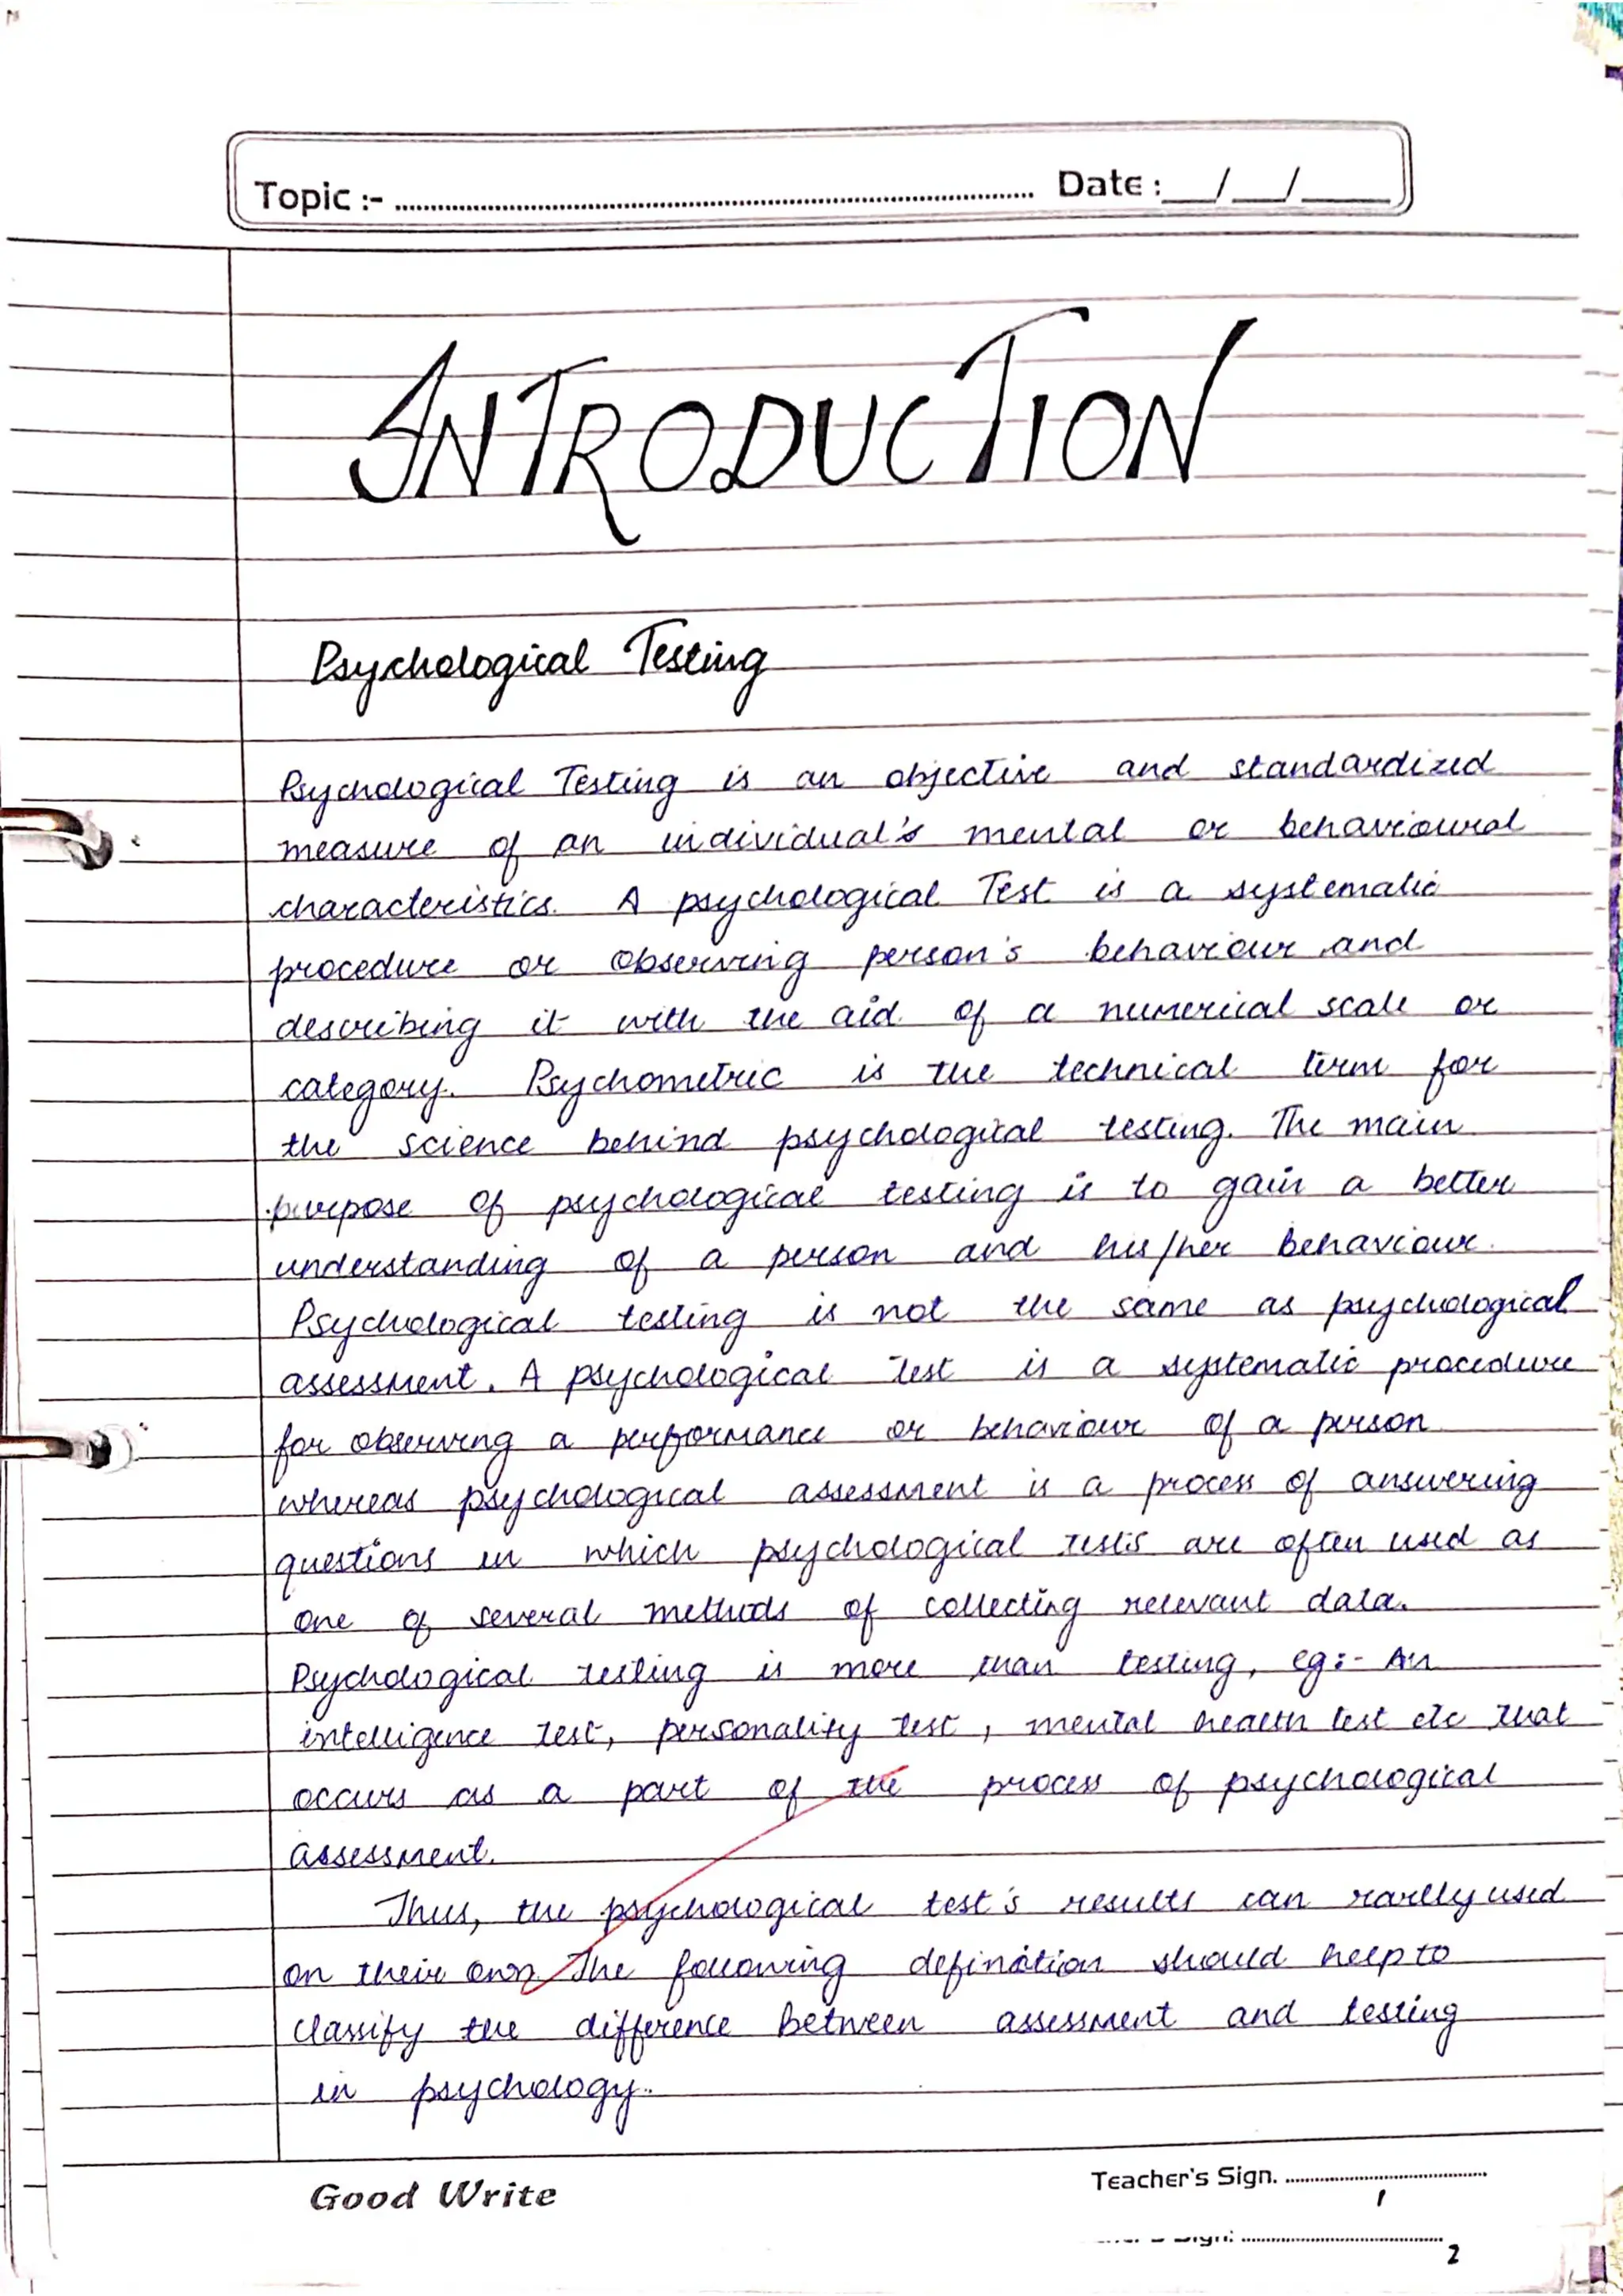 Topic :- Date : __/__/____
INTRODUCTION
Psychological Testing
Psychological Testing is an objective and standardized
measure of an individual's mental or behavioural
characteristics. A psychological Test is a systematic
procedure or observing person's behaviour and
describing it with the aid of a numerical scale or
category. Psychometric is the technical term for
the science behind psychological testing. The main
purpose of psychological testing is to gain a better
understanding of a person and his/her behaviour.
Psychological testing is not the same as psychological
assessment. A psychological Test is a systematic procedure
for observing a performance or behaviour of a person
whereas psychological assessment is a process of answering
questions in which psychological tests are often used as
one of several methods of collecting relevant data.
Psychological testing is more than testing, eg:- An
intelligence test, personality test, mental health test etc that
occurs as a part of the process of psychological
assessment.
Thus, the psychological test's results can rarelly used
on their own. The following defination should help to
classify the difference between assessment and testing
in psychology.
Good Write
Teacher's Sign.
1
Sign.
2